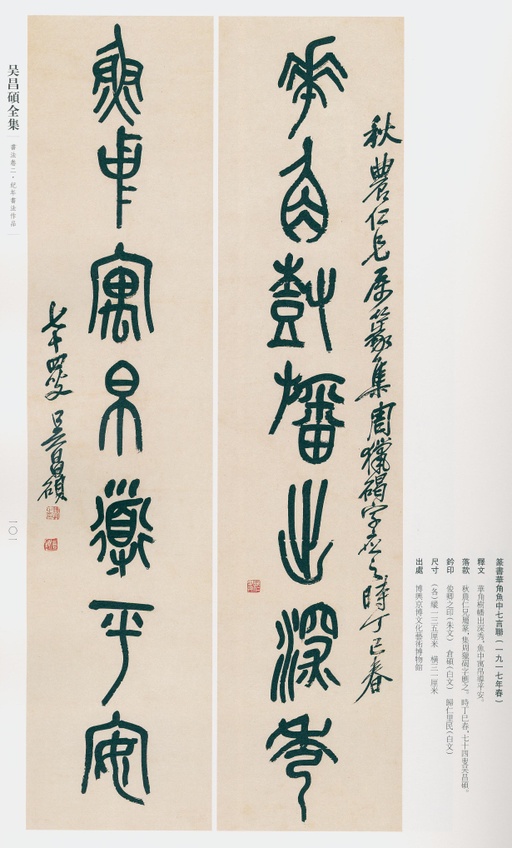 華角樹幡出深秀
秋農仁兄屬篆集周獵碣字應之時丁巳春
魚中寓帛導平安
七十四叟吴昌碩
篆書華角魚中七言聯（一九一七年春）
釋文　華角樹幡出深秀，魚中寓帛導平安。
落款　秋農仁兄屬篆，集周獵碣字應之。時丁巳春，七十四叟吴昌碩。
鈐印　俊卿之印（朱文）　倉碩（白文）　歸仁里民（白文）
尺寸　（各）縱一三五厘米　橫三一厘米
出處　博興京博文化藝術博物館
吴昌碩全集
書法卷二·紀年書法作品
一〇一